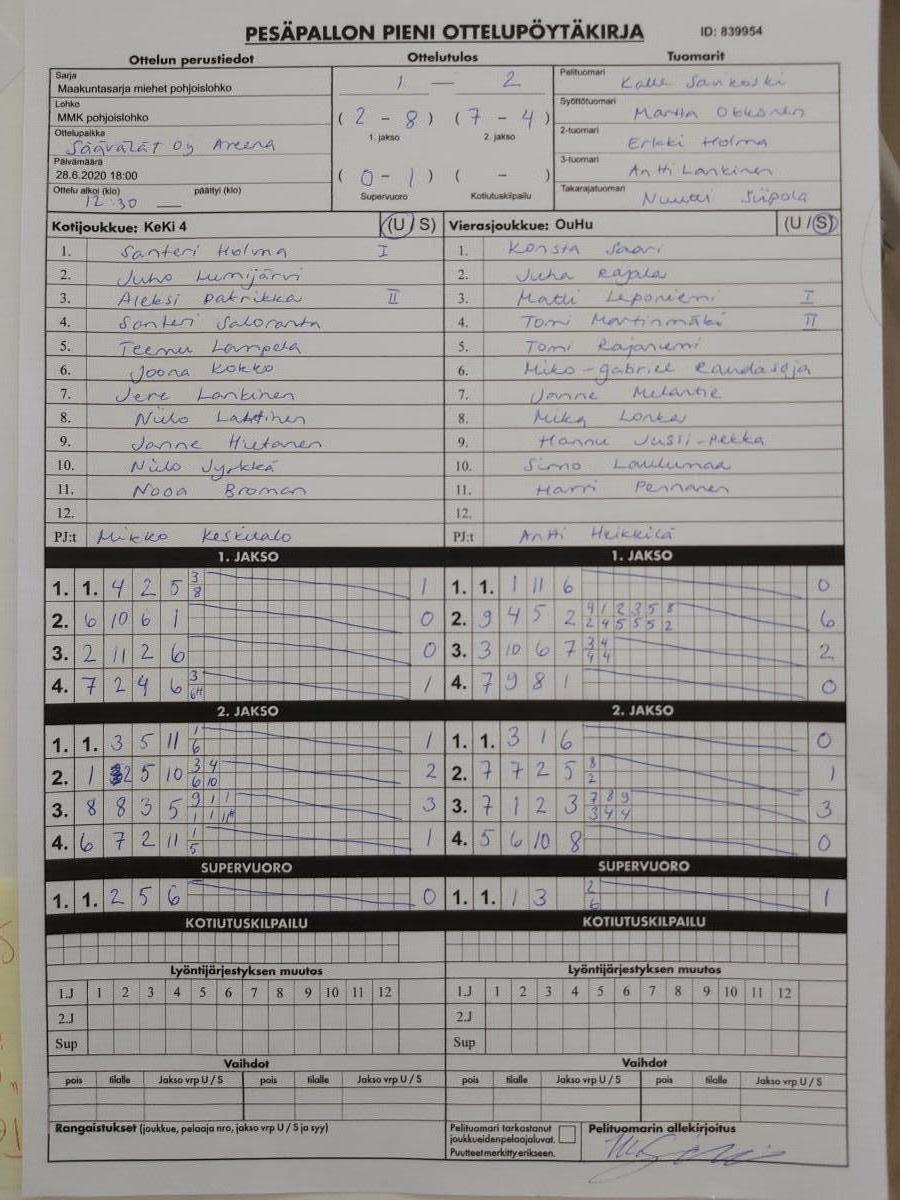 PESÄPALLON PIENI OTTELUPÖYTÄKIRJA ID: 839954
Ottelun perustiedot Ottelutulos Tuomarit
Sarja
Maakuntasarja miehet pohjoislohko
1 — 2
Pelituomari Kalle Sankoski
Lohko
MMK pohjoislohko
( 2 - 8 ) ( 7 - 4 )
1. jakso 2. jakso
Syöttötuomari Martta Okkonen
Ottelupaikka
Säävälät Oy Areena
2-tuomari Erkki Holma
Päivämäärä
28.6.2020 18:00
( 0 - 1 ) ( - )
Supervuoro Kotiutuskilpailu
3-tuomari Antti Lankinen
Ottelu alkoi (klo) päättyi (klo)
12:30
Takarajatuomari Nuutti Siipola
Kotijoukkue: KeKi 4 (U / S) Vierasjoukkue: OuHu (U / S)
1. Santeri Holma I 1. Konsta Saari
2. Juho Lumijärvi 2. Juha Rajala
3. Aleksi Patrikka II 3. Matti Leponiemi I
4. Santeri Saloranta 4. Tomi Martinmäki II
5. Teemu Lampela 5. Tomi Rajaniemi
6. Joona Kokko 6. Miko-Gabriel Randasoja
7. Jere Lankinen 7. Janne
8. Niilo Lahtinen 8. Mika
9. Janne Hietanen 9. Hannu Jussi-Pekka
10. Niilo Jyrkkä 10. Simo Laulumaa
11. Nooa Broman 11. Harri Pennanen
12. 12.
PJ:t Mikko Keskitalo PJ:t Antti Heikkilä
1. JAKSO 1. JAKSO
1. 1. 4 2 5 3/8 1 1. 1. 1 11 6 0
2. 6 10 6 1 0 2. 9 4 5 2 9/2 1/4 2/5 3/5 5/5 8/2 6
3. 2 11 2 6 0 3. 3 10 6 7 3/4 4/4 2
4. 7 2 9 6 3/6H 1 4. 7 9 8 1 0
2. JAKSO 2. JAKSO
1. 1. 3 5 11 1/6 1 1. 1. 3 1 6 0
2. 1 2 5 10 3/6 4/10 2 2. 7 7 2 5 8/2 1
3. 8 8 3 5 9/1 1/1 1/11H 3 3. 7 1 2 3 7/3 8/4 9/4 3
4. 6 7 2 11 1/5 1 4. 5 6 10 8 0
SUPERVUORO SUPERVUORO
1. 1. 2 5 6 0 1. 1. 1 3 2/6 1
KOTIUTUSKILPAILU KOTIUTUSKILPAILU
Lyöntijärjestyksen muutos Lyöntijärjestyksen muutos
1.J 1 2 3 4 5 6 7 8 9 10 11 12 1.J 1 2 3 4 5 6 7 8 9 10 11 12
2.J 2.J
Sup Sup
Vaihdot Vaihdot
pois tilalle Jakso vrp U / S pois tilalle Jakso vrp U / S pois tilalle Jakso vrp U / S pois tilalle Jakso vrp U / S
Rangaistukset (joukkue, pelaaja nro, jakso vrp U / S ja syy)
Pelituomari tarkastanut
joukkueidenpelaajaluvat.
Puutteet merkitty erikseen.
Pelituomarin allekirjoitus